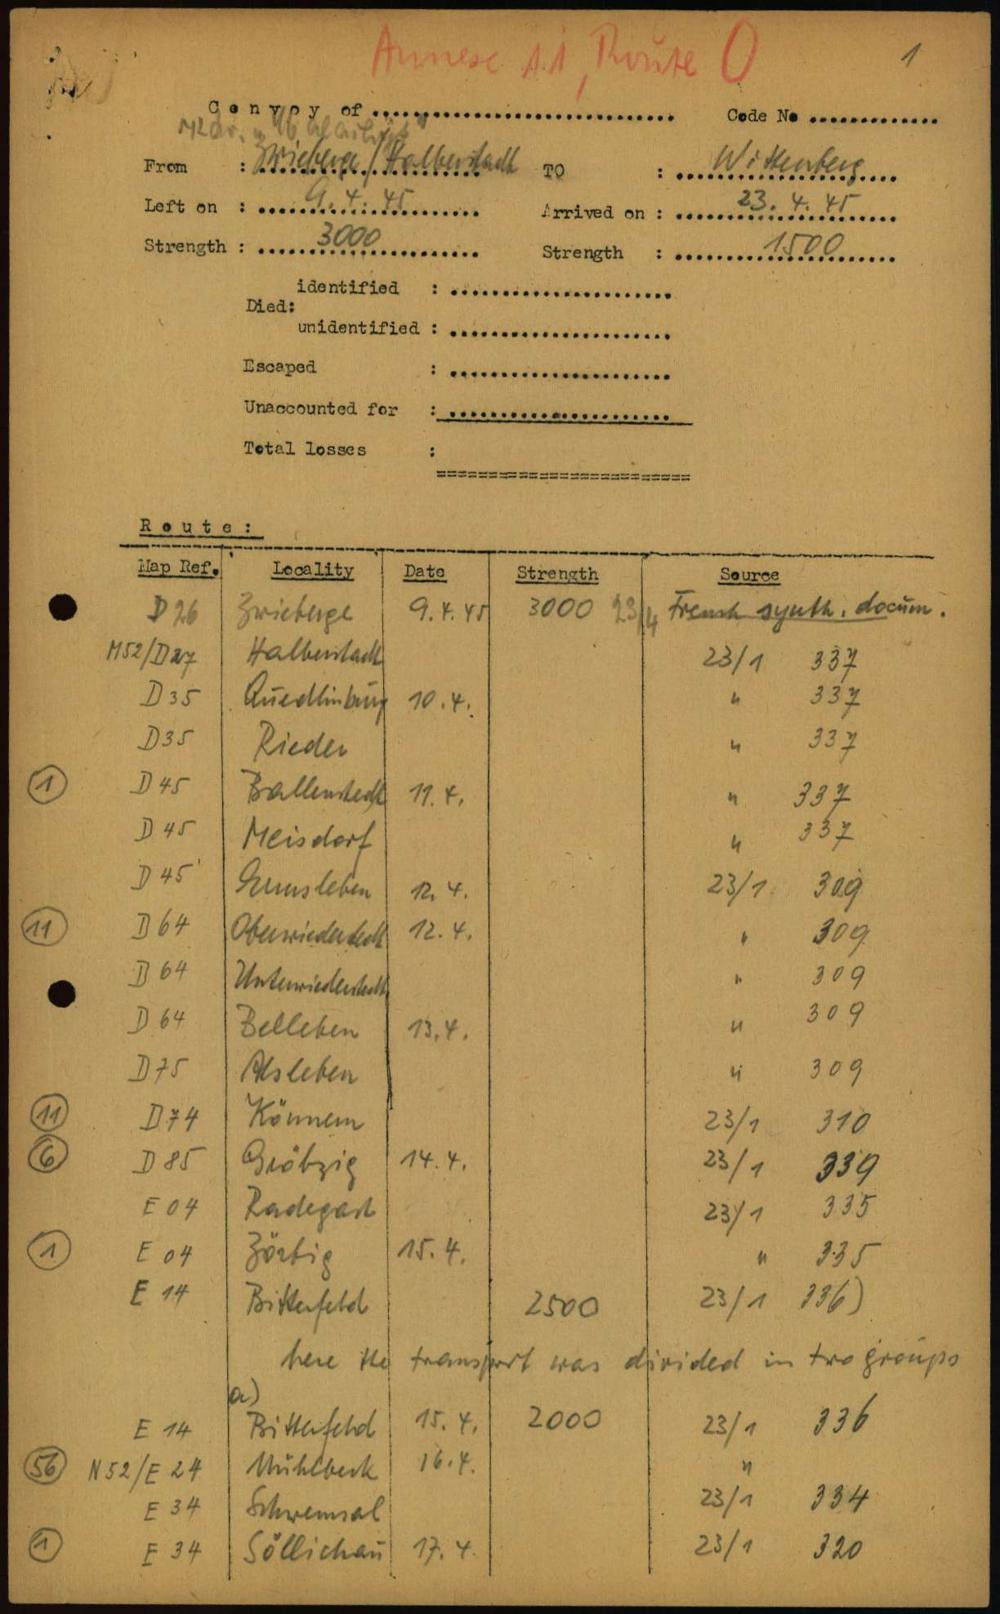 Annexe 11, Route O 1
Convoy of .......... Code No ..........
From : Zwieberge / Halberstadt TO : Wittenberg
Left on : 9.4.45 Arrived on : 23.4.45
Strength : 3000 Strength : 1500
identified : ..........
Died:
unidentified : ..........
Escaped : ..........
Unaccounted for : ..........
Total losses :
Route:
Map Ref. Locality Date Strength Source
D 26 Zwieberge 9.4.45 3000 23/4 French synth. docum.
M52/D27 Halberstadt 23/1 337
D35 Quedlinburg 10.4. " 337
D35 Rieder " 337
1 D45 Ballenstedt 11.4. " 337
D45 Meisdorf " 337
D45 Ermsleben 12.4. 23/1 309
11 D64 Oberwiederstedt 12.4. " 309
D64 Unterwiederstedt " 309
D64 Belleben 13.4. " 309
D75 Alsleben " 309
11 D74 Könnern 23/1 310
6 D85 Gröbzig 14.4. 23/1 339
E04 Radegast 23/1 335
1 E04 Zörbig 15.4. " 335
E14 Bitterfeld 2500 23/1 336)
here the transport was divided in two groups
a)
E14 Bitterfeld 15.4. 2000 23/1 336
56 N52/E24 Mühlbeck 16.4. "
E34 Schwemsal 23/1 334
1 E34 Söllichau 17.4. 23/1 320